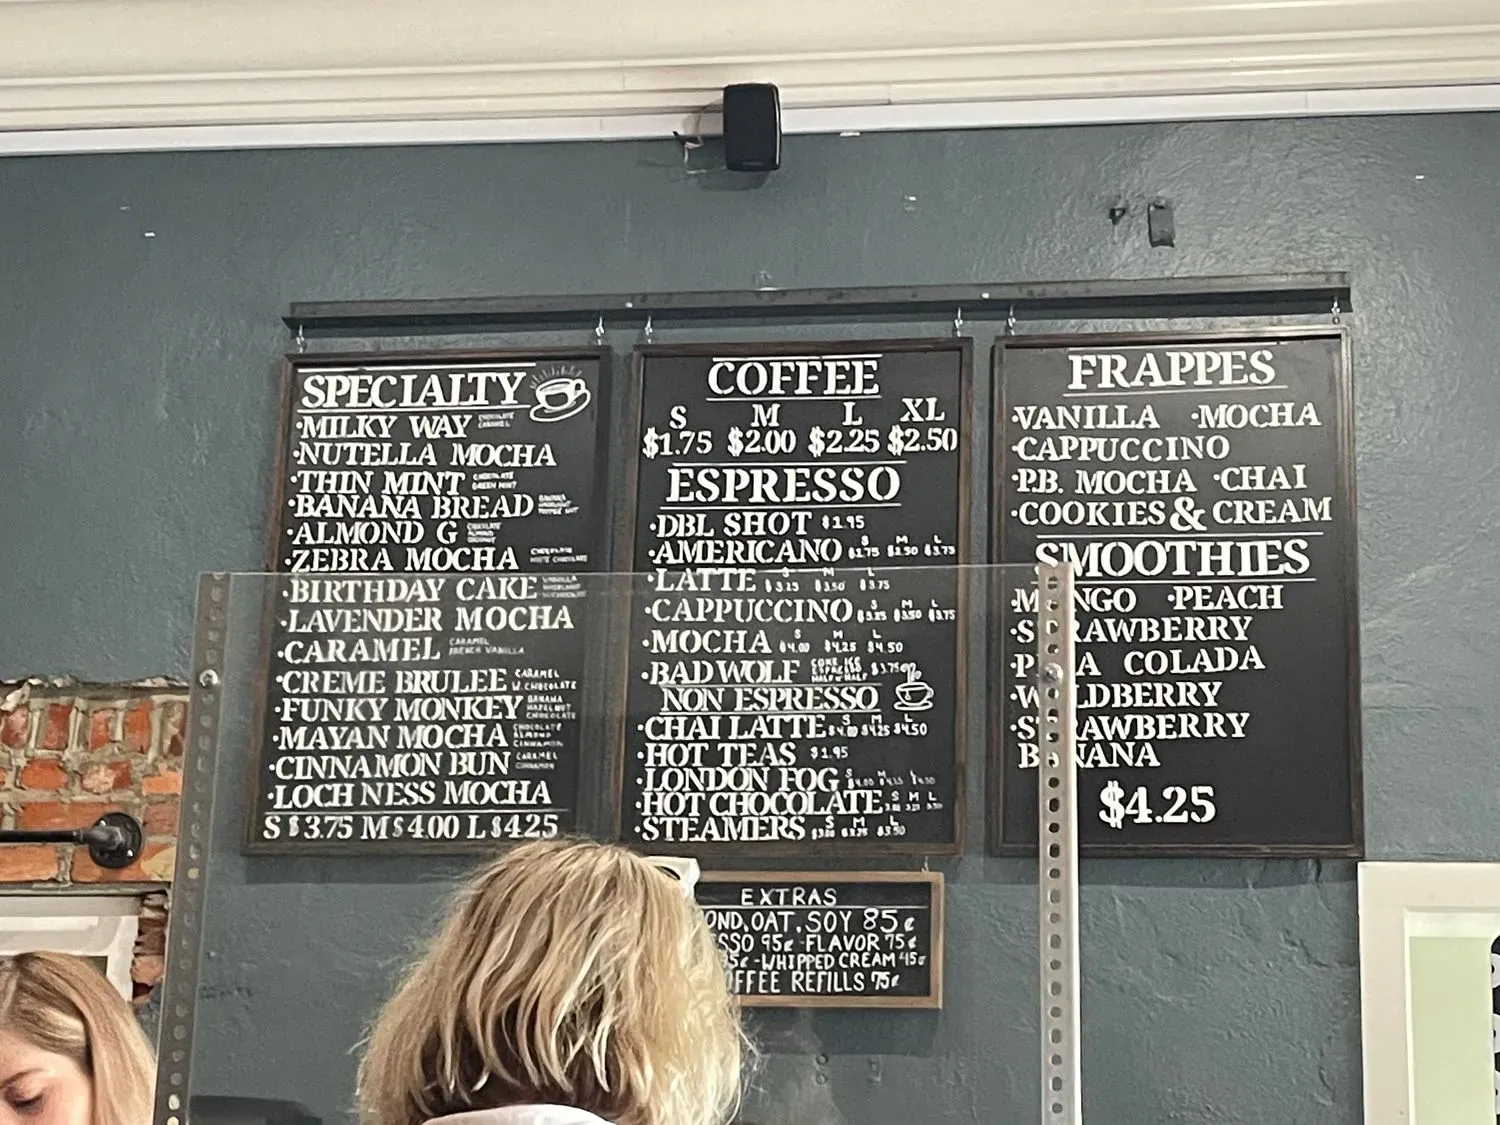 SPECIALTY
·MILKY WAY CHOCOLATE
CARAMEL
·NUTELLA MOCHA
·THIN MINT CHOCOLATE
GREEN MINT
·BANANA BREAD BANANA
HAZELNUT
·ALMOND G CHOCOLATE
ALMOND
COCONUT
·ZEBRA MOCHA CHOCOLATE
WHITE CHOCOLATE
·BIRTHDAY CAKE VANILLA
HAZELNUT
·LAVENDER MOCHA
·CARAMEL CARAMEL
FRENCH VANILLA
·CREME BRULEE CARAMEL
W. CHOCOLATE
·FUNKY MONKEY BANANA
HAZELNUT
CHOCOLATE
·MAYAN MOCHA CHOCOLATE
ALMOND
CINNAMON
·CINNAMON BUN CARAMEL
CINNAMON
·LOCH NESS MOCHA
S $3.75 M $4.00 L $4.25
COFFEE
S M L XL
$1.75 $2.00 $2.25 $2.50
ESPRESSO
·DBL SHOT $1.95
S M L
·AMERICANO $2.50 $3.75
S M L
·LATTE $3.25 $3.50 $3.75
S M L
·CAPPUCCINO $3.25 $3.50 $3.75
S M L
·MOCHA $4.00 $4.25 $4.50
·BAD WOLF COKE, ICE
ESPRESSO
HALF N' HALF $3.75
NON ESPRESSO
S M L
·CHAI LATTE $4.00 $4.25 $4.50
·HOT TEAS $1.95
S M L
·LONDON FOG $4.00 $4.25 $4.50
S M L
·HOT CHOCOLATE
S M L
·STEAMERS $3.00 $3.25 $3.50
FRAPPES
·VANILLA ·MOCHA
·CAPPUCCINO
·P.B. MOCHA ·CHAI
·COOKIES & CREAM
SMOOTHIES
·MANGO ·PEACH
·STRAWBERRY
·PINA COLADA
·WILDBERRY
·STRAWBERRY
BANANA
$4.25
EXTRAS
OND, OAT, SOY 85¢
SSO 95¢ -FLAVOR 75¢
-WHIPPED CREAM 45¢
OFFEE REFILLS 75¢